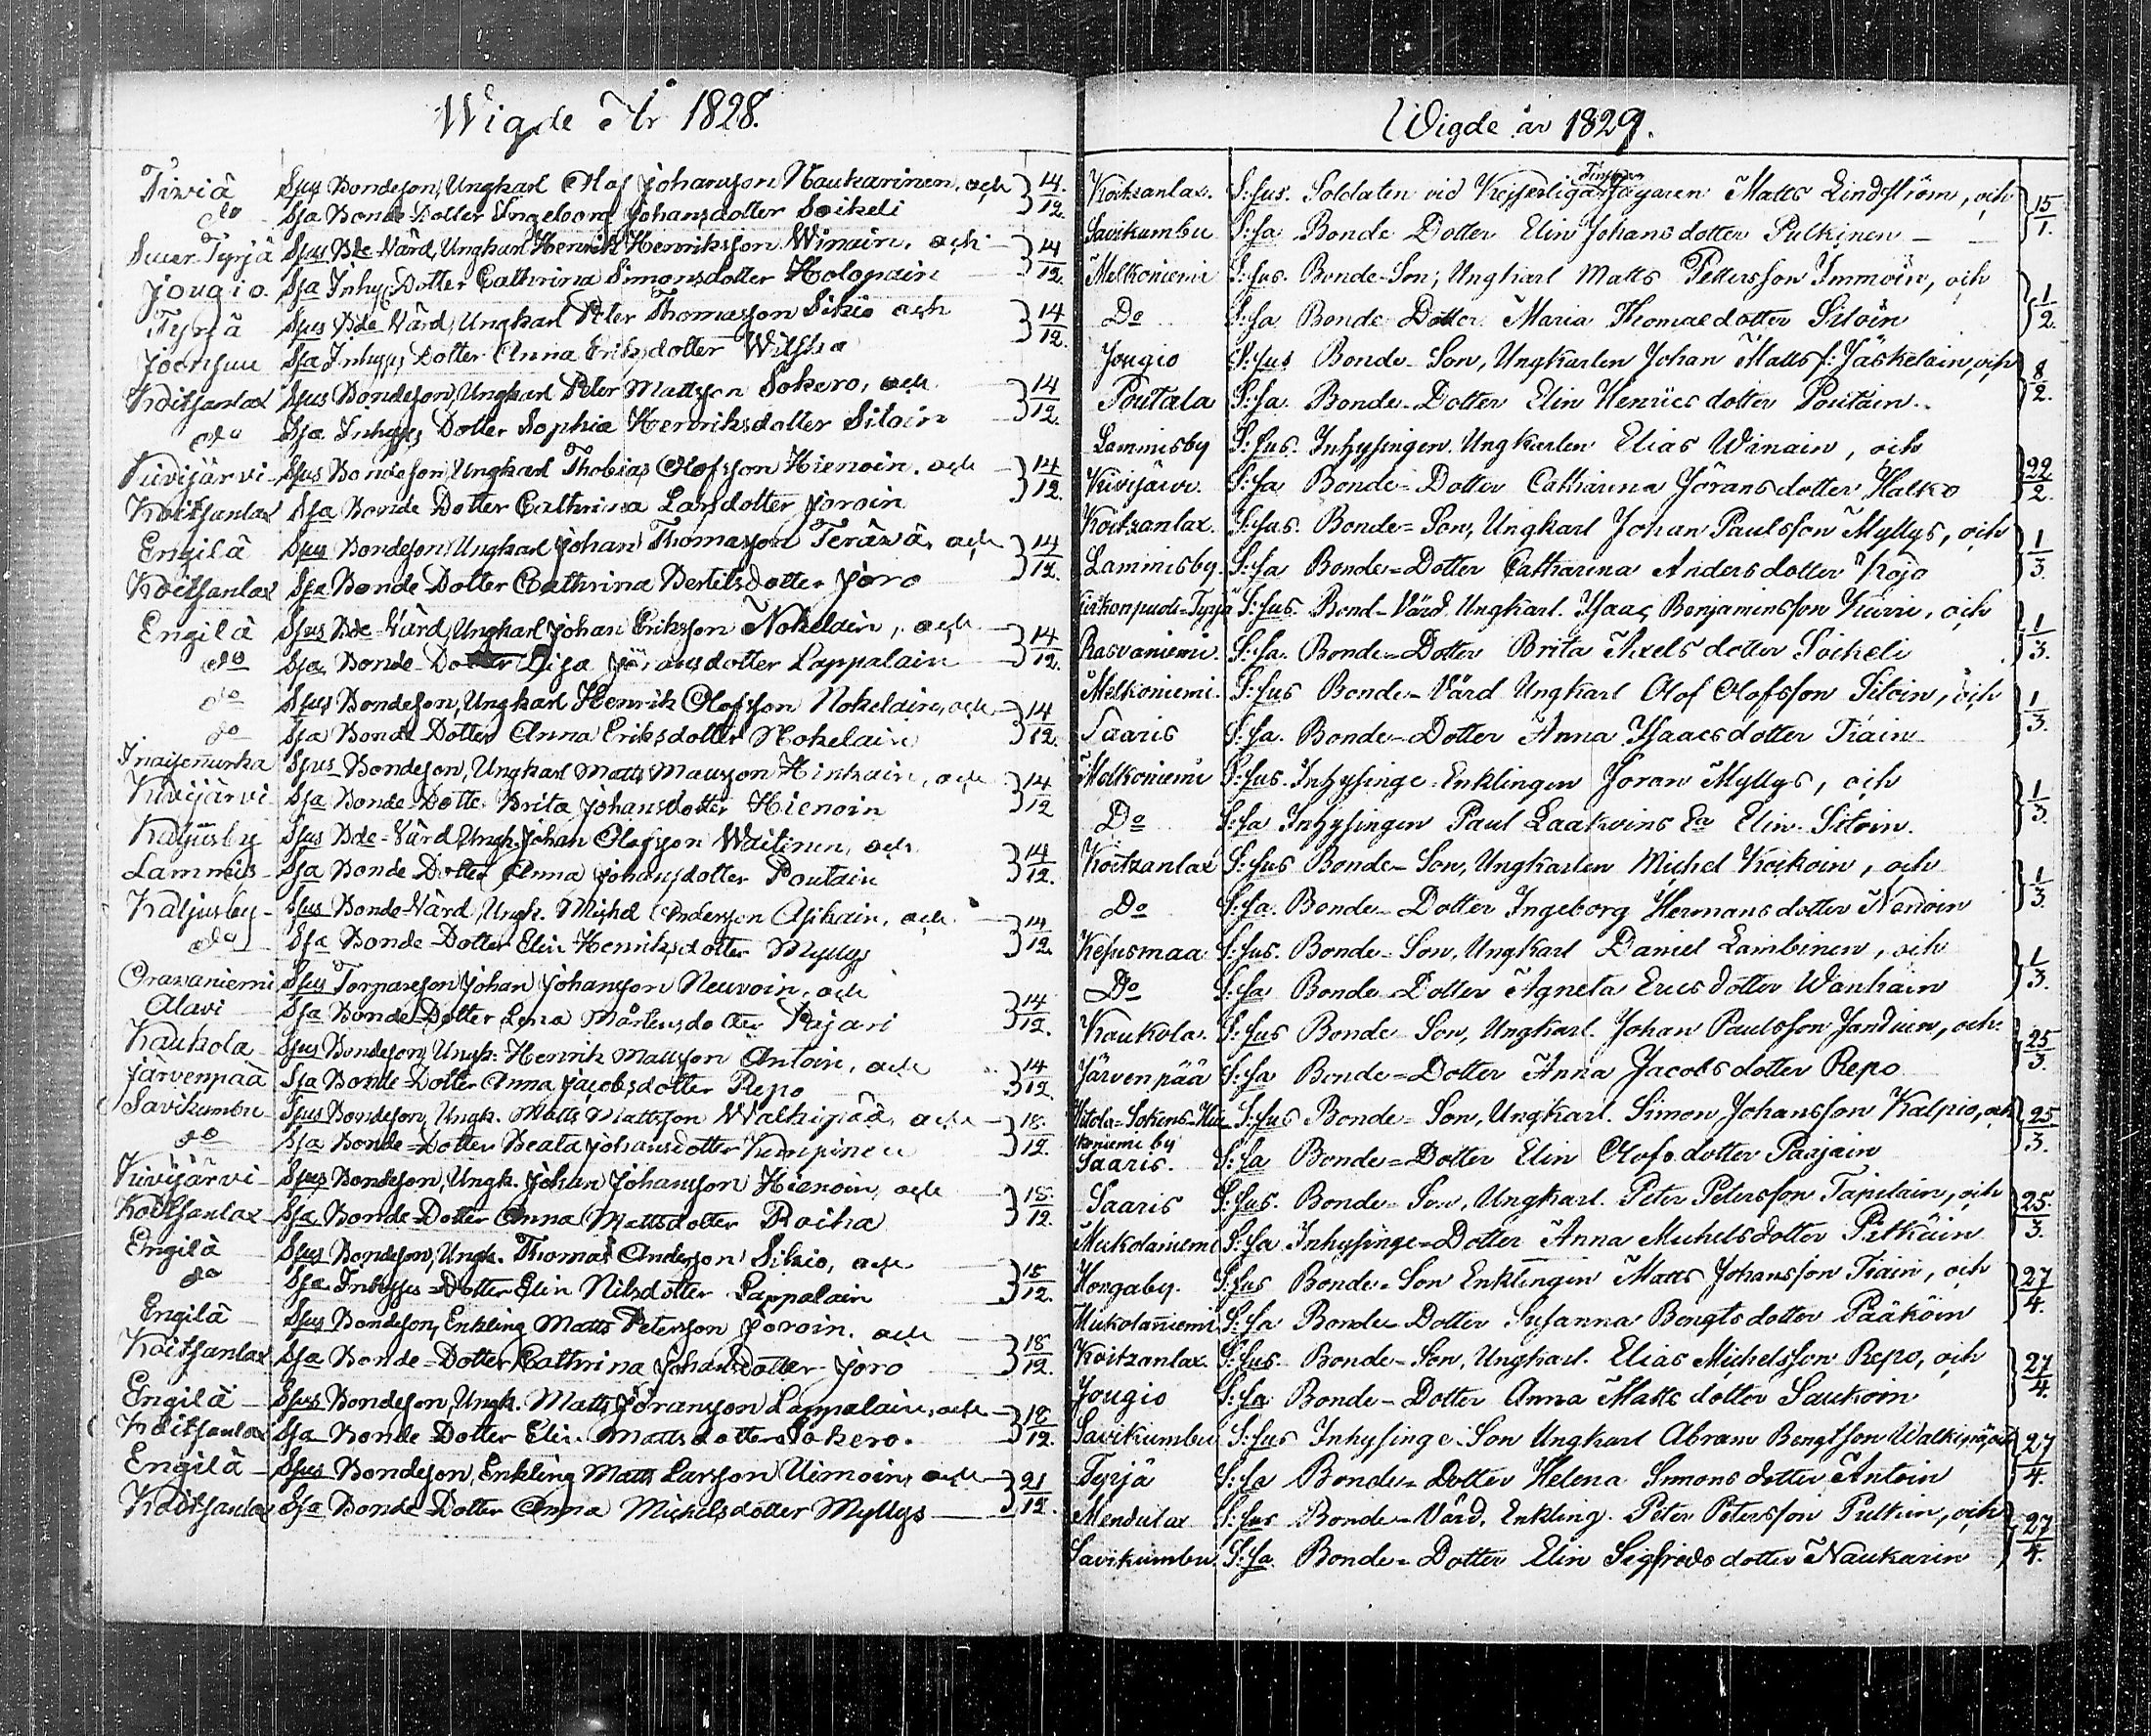 Wigde År 1828.
Tiviä Sjus Bondeson, Ungkarl Olof Johansson Naukarinen, och 14/12.
do Sja Bonde-Dotter Ingeborg Johansdotter Soikeli
Suur Tyrjä Sjus Bde-Värd, Ungkarl Henrik Henriksson Winain, och 14/12.
Jougio. Sja Inhys Dotter Cathrina Simonsdotter Holopain
Tyrjä Sjus Bde-Värd, Ungkarl Peter Thomasson Sikiö och 14/12.
Joensuu Sja Inhyses Dotter Anna Eriksdotter
Koitsanlax Sjus Bondeson, Ungkarl Peter Mattsson Sokero, och 14/12.
do Sja Inhyses Dotter Sophia Henriksdotter Siloin
Kivijärvi Sjus Bondeson, Ungkarl Thobias Olofsson Hienoin, och 14/12.
Koitsanlax Sja Bonde Dotter Cathrina Larsdotter Joroin
Engilä Sjus Bondeson, Ungkarl Johan Thomasson Teräwä, och 14/12.
Koitsanlax Sja Bonde-Dotter Cathrina Bertilsdotter Joro
Engilä Sjus Bde-Värd, Ungkarl Johan Eriksson Nokelain, och 14/12.
do Sja Bonde-Dotter Lisa Jöransdotter Lappalain
do Sjus Bondeson, Ungkarl Henrik Olofsson Nokelain, och 14/12.
do Sja Bonde-Dotter Anna Eriksdotter Nokelain
Sjus Bondeson, Ungkarl Matts Mattsson Hinkain, och 14/12
Kivijärvi Sja Bonde-Dotter Brita Johansdotter Hienoin
Kaljusby Sjus Bde-Värd, Ungk. Johan Olofsson Waitinen, och 14/12.
Lammis Sja Bonde-Dotter Anna Johansdotter Poutain
Kaljusby Sjus Bonde-Värd, Ungk. Michel Andersson Asikain, och 14/12.
do Sja Bonde-Dotter Elin Henriksdotter Myllys
Oravaniemi Sjus Torparson Johan Johansson Neuvoin, och 14/12.
Alavi Sja Bonde-Dotter Lena Mårtensdotter Pajari
Kaukola Sjus Bondeson, Ungk. Henrik Mattsson Antoin, och 14/12
Järvenpää Sja Bonde-Dotter Anna Jacobsdotter Repo
Savikumbu Sjus Bondeson, Ungk. Matts Mattsson Walkipää, och 18./12.
do Sja Bonde-Dotter Beata Johansdotter Kumpinen
Kivijärvi Sjus Bondeson, Ungk. Johan Johansson Hienoin, och 18./12.
Koitsanlax Sja Bonde-Dotter Anna Mattsdotter Roiha
Engilä Sjus Bondeson, Ungk. Thomas Andersson Sikiö, och 18/12.
do Sja Inhyses-Dotter Elin Nilsdotter Lappalain
Engilä Sjus Bondeson, Enkling Matts Petersson Joroin, och 18/12.
Koitsanlax Sja Bonde-Dotter Cathrina Johansdotter Joro
Engilä Sjus Bondeson, Ungk. Matts Jöransson Lappalain, och 18/12.
Koitsanlax Sja Bonde Dotter Elin Mattsdotter Sokero.
Engilä Sjus Bondeson, Enkling Matts Larsson Uimoin, och 21/12.
Koitsanlax Sja Bonde-Dotter Anna Michelsdotter Myllys
Wigde år 1829.
Koitzanlax. S:sus. Soldaten vid Kejserliga Finska Jägaren Matts Lindström, och 15/1.
Savikumbu S:sa Bonde Dotter Elin Johansdotter Pulkinen
Melkoniemi S:sus. Bonde-Son, Ungkarl Matts Pettersson Immoin, och 1/2.
Do S:sa Bonde Dotter Maria Thomaedotter Siloin
Jougio S:sus Bonde-Son, Ungkarlen Johan Matts s: Jäskelain, och 8/2.
Poutala S:sa Bonde-Dotter Elin Henricsdotter Poutain.
Lammisby S:sus. Inhysingen Ungkarlen Elias Winain, och 22/2.
Kivijärvi. S:sa Bonde-Dotter Catharina Jöransdotter Halko
Koitzanlax. S:sus. Bonde-Son, Ungkarl Johan Paulsson Myllys, och 1/3.
Lammisby. S:sa Bonde-Dotter Catharina Andersdotter Kojo
Kirkonpuoli-Tyrjä S:sus. Bond-Värd Ungkarl. Isaac Benjaminsson Kiirri, och 1/3.
Rasvaniemi. S:sa. Bonde-Dotter Brita Axelsdotter Soikeli
Melkoniemi. S:sus Bonde-Värd Ungkarl Olof Olofsson Siloin, och 1/3.
Saaris S:sa. Bonde-Dotter Anna Isaacsdotter Tiain
Melkoniemi S:sus. Inhysinge-Enklingen Joran Myllys, och 1/3.
Do S:sa Inhysingen Paul Laakoins Ea Elin Siloin.
Koitzanlax S:sus Bonde-Son, Ungkarlen Michel Koikoin, och 1/3.
Do S:sa. Bonde-Dotter Ingeborg Hermansdotter Nenoin
Kesusmaa S:sus. Bonde-Son, Ungkarl Daniel Lambinen, och 1/3.
Do S:sa Bonde-Dotter Agneta Ericsdotter Wanhain
Kaukola. S:sus Bonde-Son, Ungkarl. Johan Paulsson och 25/3.
Järvenpää S:sa Bonde-Dotter Anna Jacobsdotter Repo
Hitola-Sokens S:sus Bonde-Son, Ungkarl. Simon Johansson Kalpio, och 25/3.
koniemi by
Saaris. S:sa Bonde-Dotter Elin Olofsdotter Parjain
Saaris S:sus. Bonde-Son, Ungkarl. Peter Petersson Tapilain, och 25./3.
Mukolaniemi S:sa Inhysinge-Dotter Anna Michelsdotter Pitkäin
Hongaby. S:sus Bonde-Son Enklingen Matts Johansson Tiain, och 27/4.
Mukolaniemi S:sa Bonde-Dotter Susanna Bengtsdotter Pääköin
Koitzanlax. S:sus. Bonde-Son, Ungkarl. Elias Michelsson Repo, och 27/4.
Jougio S:sa Bonde-Dotter Anna Mattsdotter Saukoin
Savikumbu S:sus Inhysinge-Son Ungkarl Abram Bengtsson Walkipää, och 27/4.
Tyrjä S:sa Bonde-Dotter Helena Simonsdotter Antoin
Mendulax S:sus Bonde-Värd, Enkling. Peter Petersson Pulkin, och 27/4.
Savikumbu. S:sa. Bonde-Dotter Elin Sigfredsdotter Naukarin